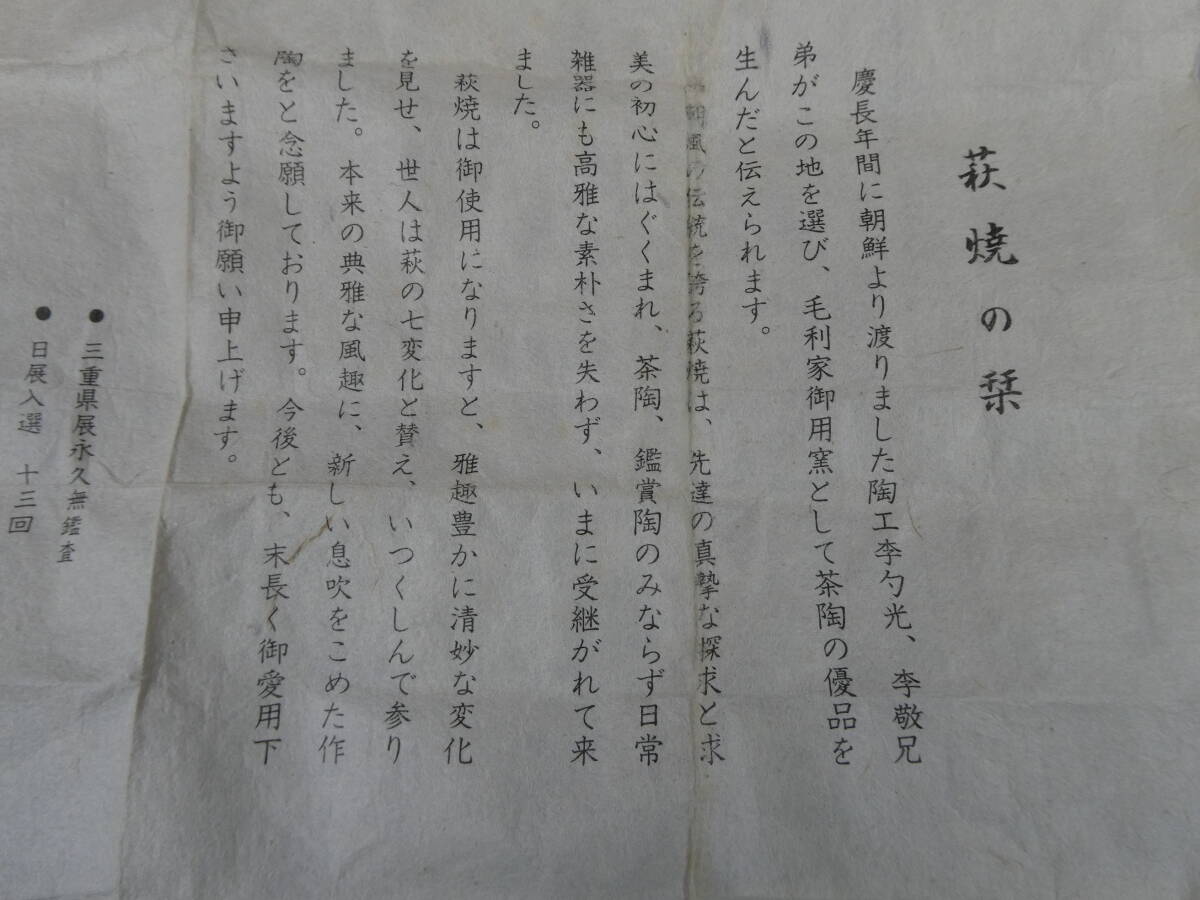 萩焼の栞
慶長年間に朝鮮より渡りました陶工李勺光、李敬兄
弟がこの地を選び、毛利家御用窯として茶陶の優品を
生んだと伝えられます。
朝風の伝統を誇る萩焼は、先達の真摯な探求と求
美の初心にはぐくまれ、茶陶、鑑賞陶のみならず日常
雑器にも高雅な素朴さを失わず、いまに受継がれて来
ました。
萩焼は御使用になりますと、雅趣豊かに清妙な変化
を見せ、世人は萩の七変化と賛え、いつくしんで参り
ました。本来の典雅な風趣に、新しい息吹をこめた作
陶をと念願しております。今後とも、末長く御愛用下
さいますよう御願い申上げます。
●三重県展永久無鑑査
●日展入選 十三回